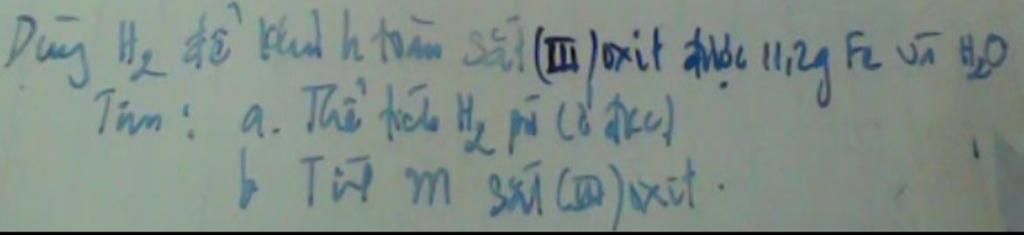 Dùng H₂ để khử h toàn sắt (III) oxit được 11,2g Fe và H₂O
Tìm: a. Thể tích H₂ pứ (ở đkc)
b Tính m sắt (III) oxit.